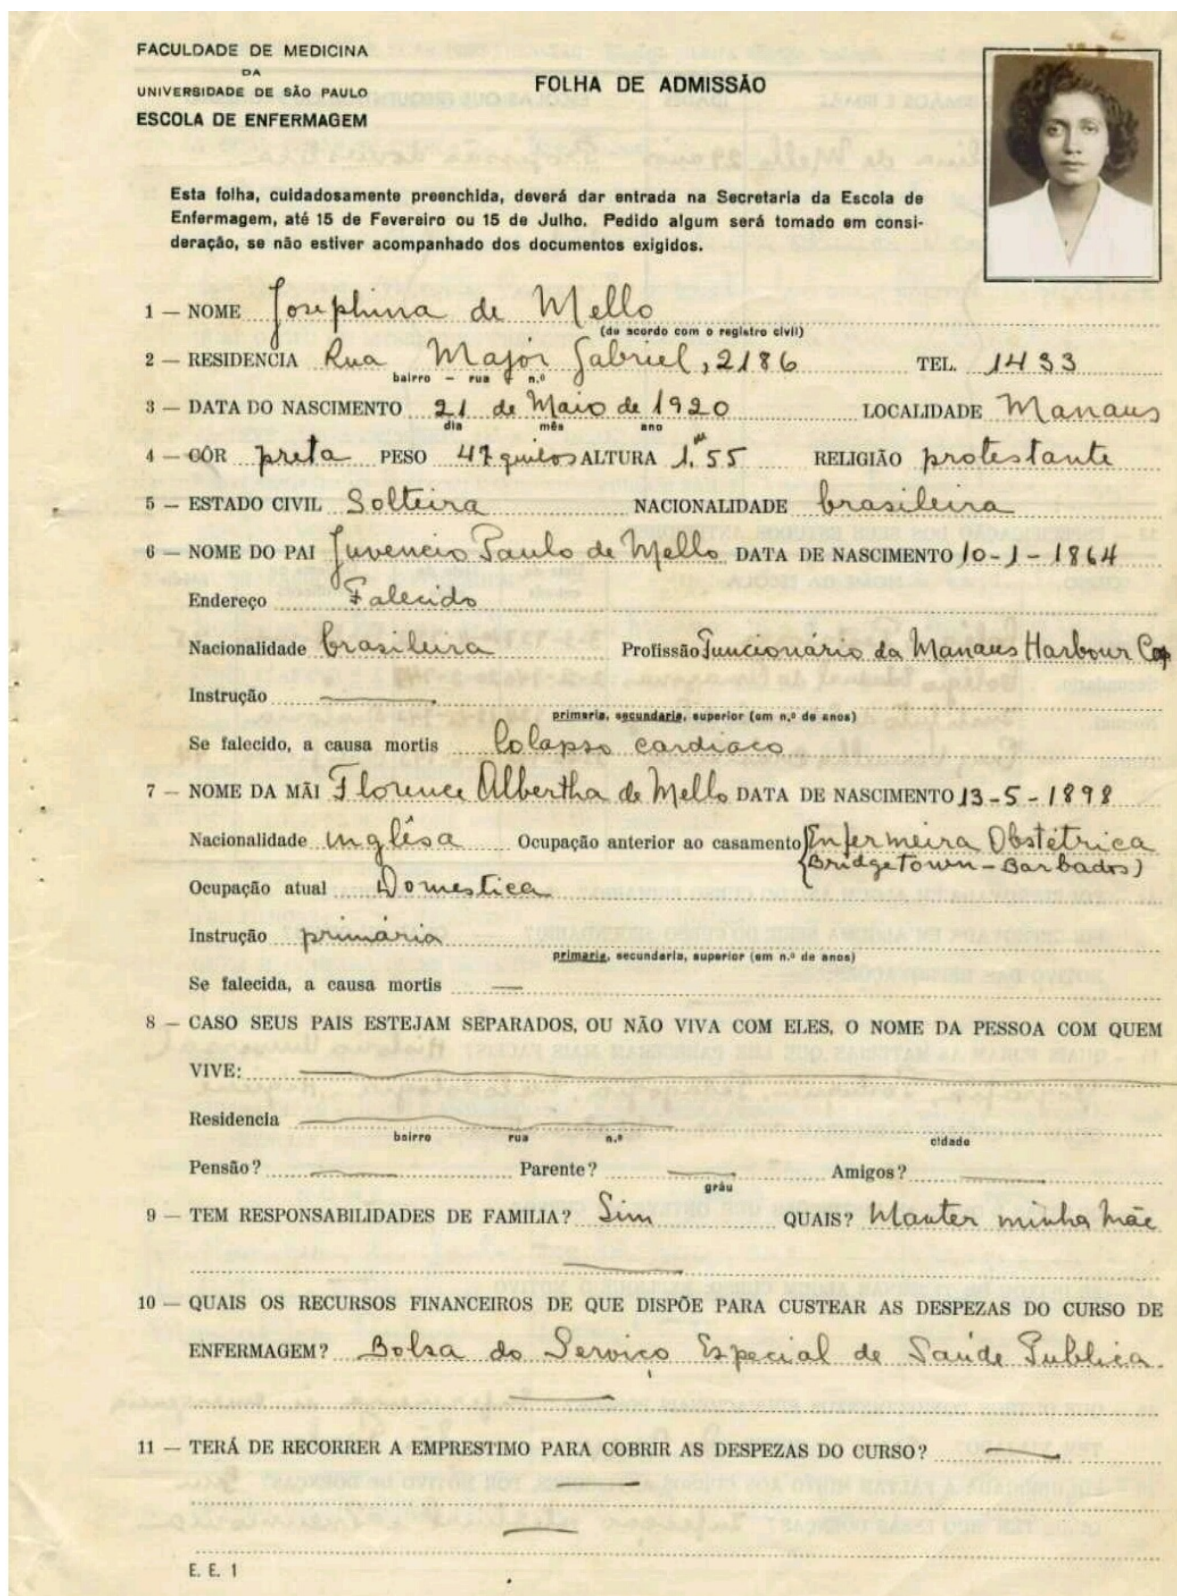 FACULDADE DE MEDICINA
DA
UNIVERSIDADE DE SÃO PAULO
ESCOLA DE ENFERMAGEM
FOLHA DE ADMISSÃO
Esta folha, cuidadosamente preenchida, deverá dar entrada na Secretaria da Escola de
Enfermagem, até 15 de Fevereiro ou 15 de Julho. Pedido algum será tomado em consi-
deração, se não estiver acompanhado dos documentos exigidos.
1 — NOME Josephina de Mello
(de acordo com o registro civil)
2 — RESIDENCIA Rua Major Gabriel, 2186 TEL. 1433
bairro — rua e n.º
3 — DATA DO NASCIMENTO 21 de Maio de 1920 LOCALIDADE Manaus
dia mês ano
4 — CÔR preta PESO 47 quilos ALTURA 1,m 55 RELIGIÃO protestante
5 — ESTADO CIVIL Solteira NACIONALIDADE brasileira
6 — NOME DO PAI Juvencio Paulo de Mello DATA DE NASCIMENTO 10-1-1864
Endereço Falecido
Nacionalidade brasileira Profissão Funcionário da Manaus Harbour
Instrução —
primaria, secundaria, superior (em n.º de anos)
Se falecido, a causa mortis Colapso cardiaco
7 — NOME DA MÃI Florence Albertha de Mello DATA DE NASCIMENTO 13-5-1898
Nacionalidade inglêsa Ocupação anterior ao casamento Enfermeira Obstétrica
(BridgeTown-Barbados)
Ocupação atual Domestica
Instrução primária
primaria, secundaria, superior (em n.º de anos)
Se falecida, a causa mortis —
8 — CASO SEUS PAIS ESTEJAM SEPARADOS, OU NÃO VIVA COM ELES, O NOME DA PESSOA COM QUEM
VIVE: —
Residencia —
bairro rua n.º cidade
Pensão? — Parente? — Amigos? —
gráu
9 — TEM RESPONSABILIDADES DE FAMILIA? Sim QUAIS? Manter minha Mãe
—
10 — QUAIS OS RECURSOS FINANCEIROS DE QUE DISPÕE PARA CUSTEAR AS DESPEZAS DO CURSO DE
ENFERMAGEM? Bolsa do Serviço Especial de Saúde Publica.
—
11 — TERÁ DE RECORRER A EMPRESTIMO PARA COBRIR AS DESPEZAS DO CURSO? —
—
—
E. E. 1